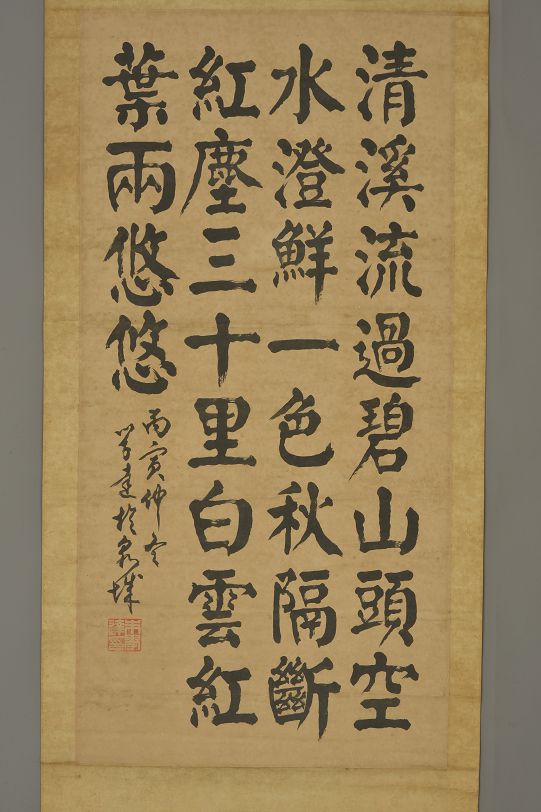 清溪流過碧山頭空
水澄鮮一色秋隔斷
紅塵三十里白雲紅
葉兩悠悠
丙寅仲冬
於泉城